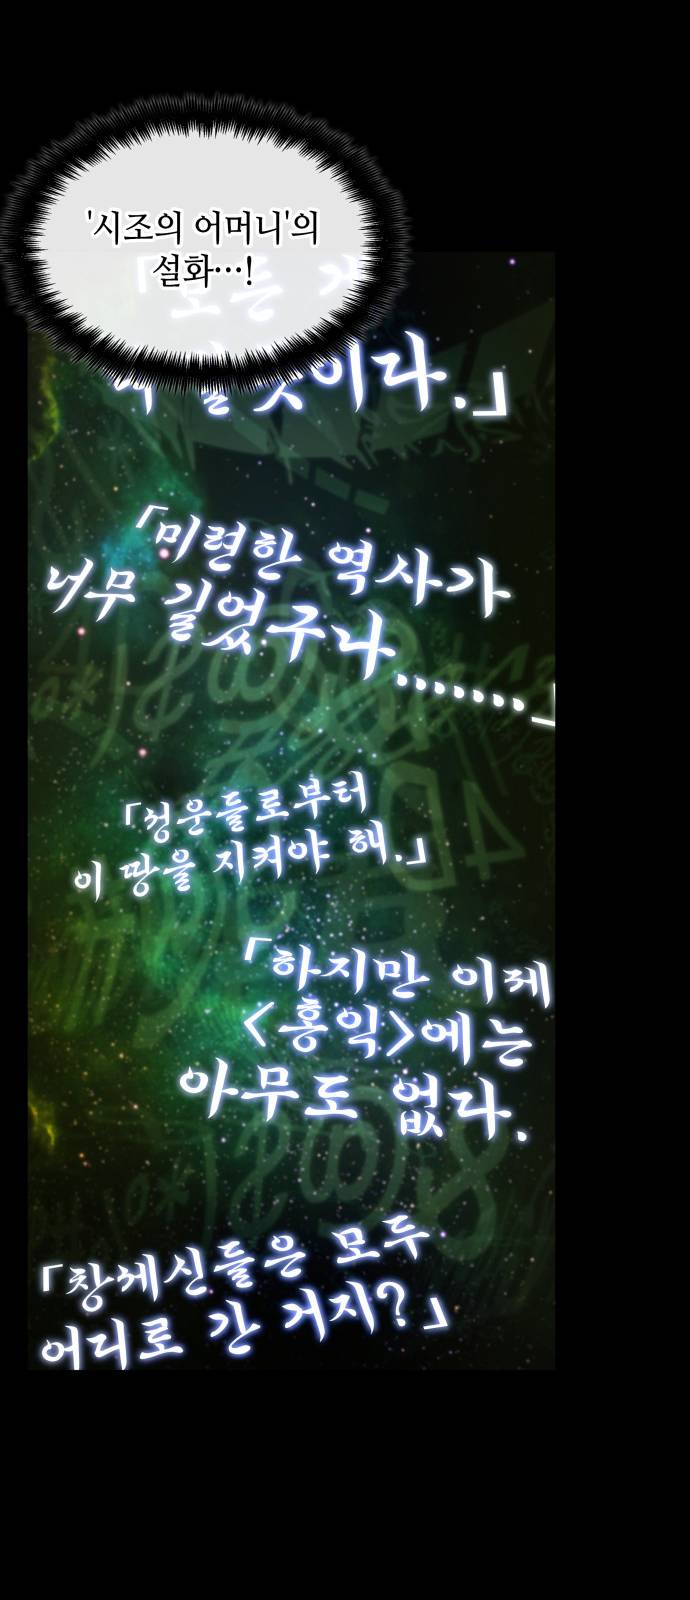 '시조의 어머니'의
설화…!
「모든 게
내 잘못이다.」
「미련한 역사가
너무 길었구나.......」
「성운들로부터
이 땅을 지켜야 해.」
「하지만 이제
<홍익>에는
아무도 없다.
「창세신들은 모두
어디로 간 거지?」